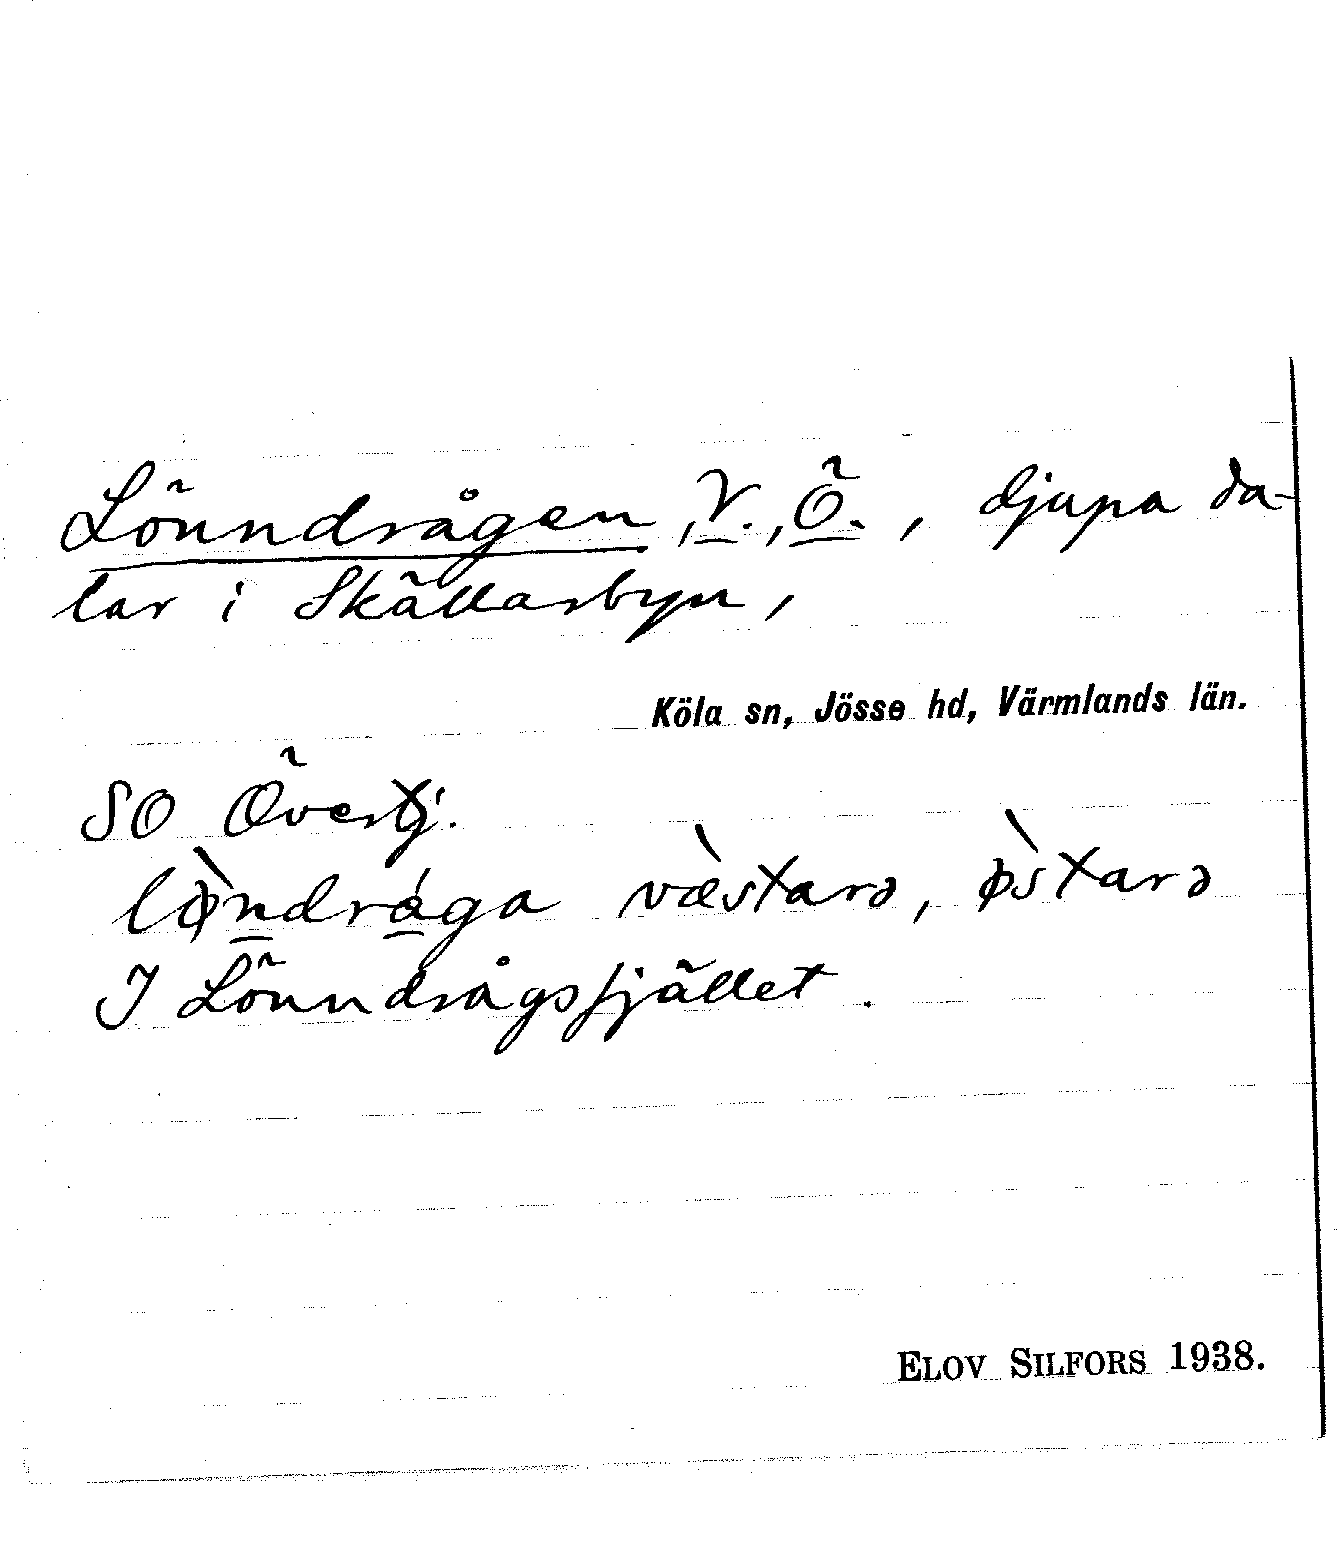 Lönndrågen, V., Ö., djupa da-
lar i Skällarbyn,
Köla sn, Jösse hd, Värmlands län.
SO Övertj.
lø̀ndrága væ̀starə, ø̀starə
I Lönndrågsfjället.
ELOV SILFORS 1938.